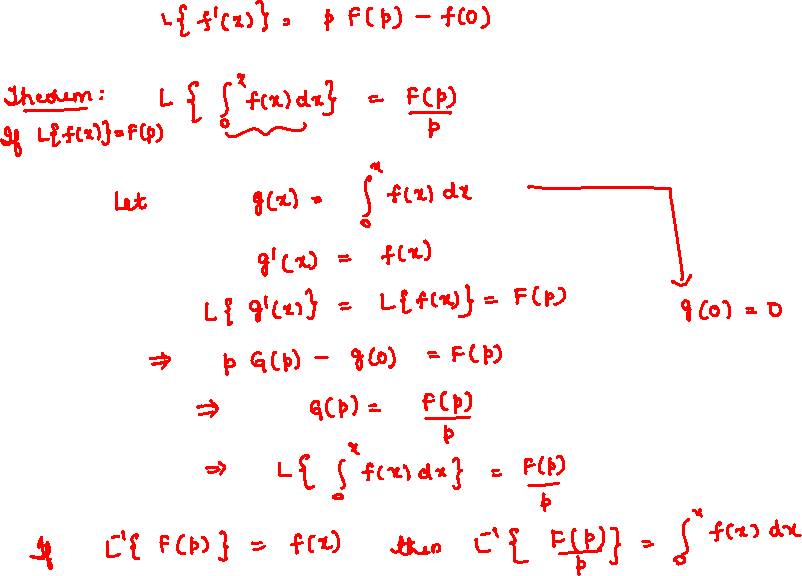 L{f'(x)} = p F(p) - f(0)
Theorem: L{∫₀ˣ f(x) dx} = F(p)/p
If L{f(x)}=F(p)
Let g(x) = ∫₀ˣ f(x) dx
g'(x) = f(x)
L{g'(x)} = L{f(x)} = F(p) g(0) = 0
⇒ p G(p) - g(0) = F(p)
⇒ G(p) = F(p)/p
⇒ L{∫₀ˣ f(x) dx} = F(p)/p
If L⁻¹{F(p)} = f(x) then L⁻¹{F(p)/p} = ∫₀ˣ f(x) dx